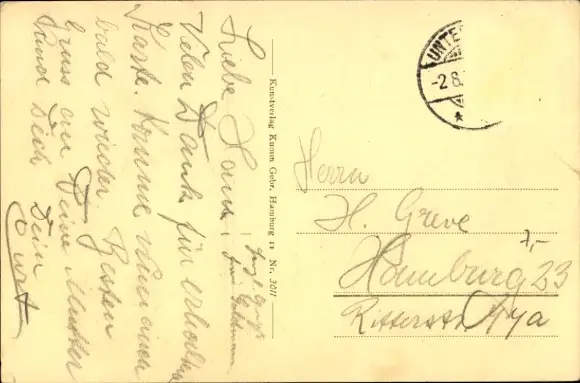 Lieber Hans!
Vielen Dank für erhaltene
Karte. Komme nun auch
bald wieder. Besten
Gruss an Deine Mutter
und Dich
Dein
Kunstverlag Kumm Gebr. Hamburg 11 Nr. 3011
UNTE
-2.8.
Herrn
H. Greve
7,-
Hamburg 23
Ritterstr.